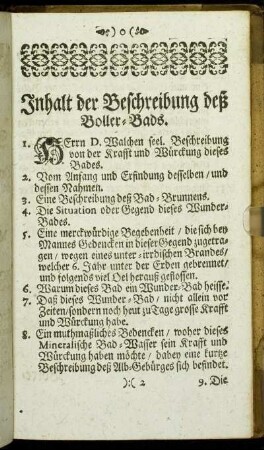 o
Inhalt der Beschreibung deß
Boller-Bads.
1. HErrn D. Walchen seel. Beschreibung
von der Krafft und Würckung dieses
Bades.
2. Vom Anfang und Erfindung desselben / und
dessen Nahmen.
3. Eine Beschreibung deß Bad-Brunnens.
4. Die Situation oder Gegend dieses Wunder-
Bades.
5. Eine merckwürdige Begebenheit / die sich bey
Mannes Gedencken in dieser Gegend zugetra-
gen / wegen eines unter-irrdischen Brandes /
welcher 6. Jahr unter der Erden gebrennet /
und folgends viel Oel herauß geflossen.
6. Warum dieses Bad ein Wunder-Bad heisse.
7. Daß dieses Wunder-Bad / nicht allein vor
Zeiten / sondern noch heut zu Tage grosse Krafft
und Würckung habe.
8. Ein muthmaßliches Bedencken / woher dieses
Mineralische Bad-Wasser sein Krafft und
Würckung haben möchte / dabey eine kurtze
Beschreibung deß Alb-Gebürges sich befindet.
):( 2 9. Die